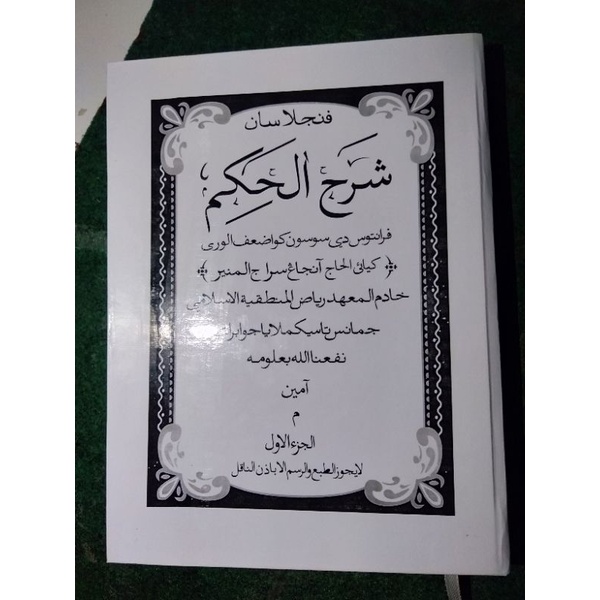 فنجلاسان
شرح الحكم
فرانتوس دي سوسون كو اضعف الورى
كيائى الحاج آنجاڠ سراج المنير
خادم المعهد رياض المنطقية الاسلامي
جمانس تاسيكملايا جوا برات
نفعنا الله بعلومه
آمين
م
الجزء الاول
لايجوز الطبع والرسم الا باذن الناقل